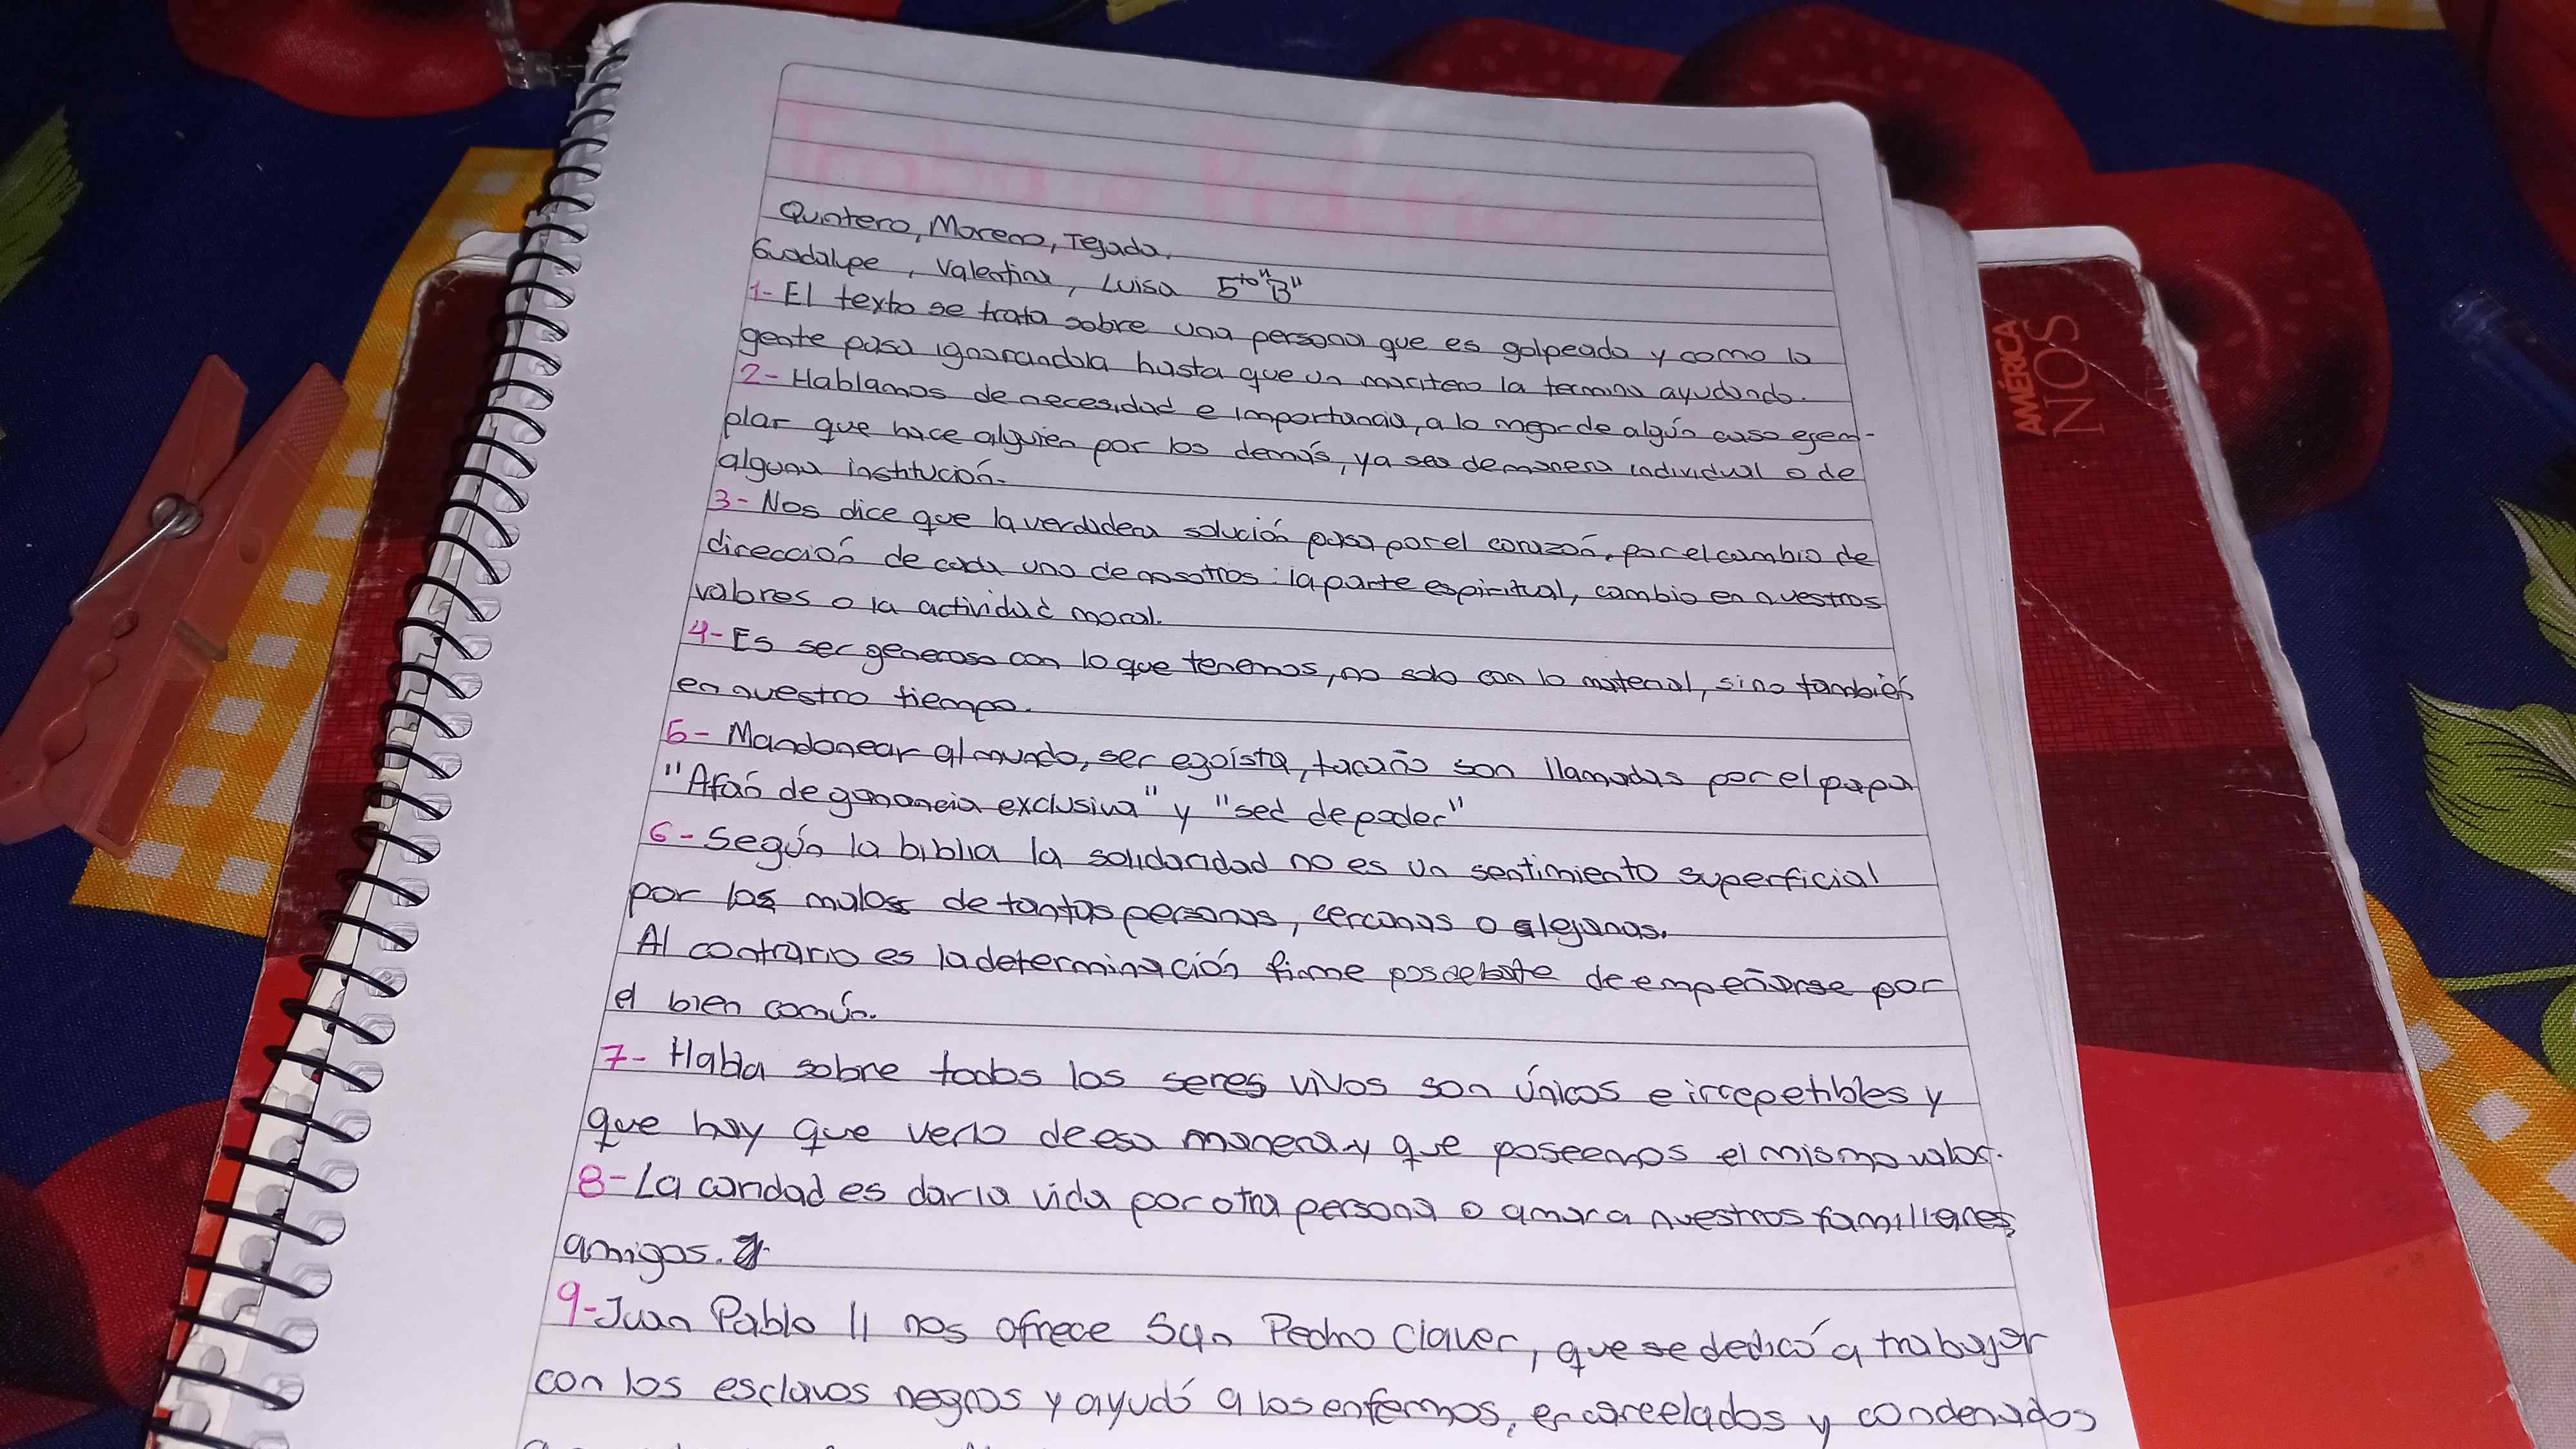 Quintero, Moreno, Tejada.
Guadalupe, Valentina, Luisa 5to "B"
1- El texto se trata sobre una persona que es golpeada y como la
gente pasa ignorandola hasta que un macitero la termina ayudando.
2- Hablamos de necesidad e importancia, a lo mejor de algún caso ejem-
plar que hace alguien por los demás, ya sea de manera individual o de
alguna institución.
3- Nos dice que la verdadera solución pasa por el corazón, por el cambio de
dirección de cada uno de nosotros: la parte espiritual, cambio en nuestros
valores o la actividad moral.
4- Es ser generoso con lo que tenemos, no solo con lo material, sino también
en nuestro tiempo.
5- Mandonear al mundo, ser egoísta, tacaño son llamadas por el papa
"Afán de ganancia exclusiva" y "sed de poder"
6- Según la biblia la solidaridad no es un sentimiento superficial
por los males de tantas personas, cercanas o alejanas.
Al contrario es la determinación firme de empeñarse por
el bien común.
7- Habla sobre todos los seres vivos son únicos e irrepetibles y
que hay que verlo de esa manera y que poseemos el mismo valor.
8- La caridad es dar la vida por otra persona o amar a nuestros familiares,
amigos.
9- Juan Pablo II nos ofrece San Pedro Claver, que se dedicó a trabajar
con los esclavos negros y ayudó a los enfermos, encarcelados y condenados
AMÉRICA
NOS